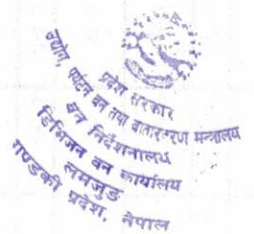 प्रदेश सरकार
उद्योग, पर्यटन वन तथा वातावरण मन्त्रालय
वन निर्देशनालय
डिभिजन वन कार्यालय
लमजुङ
गण्डकी प्रदेश, नेपाल